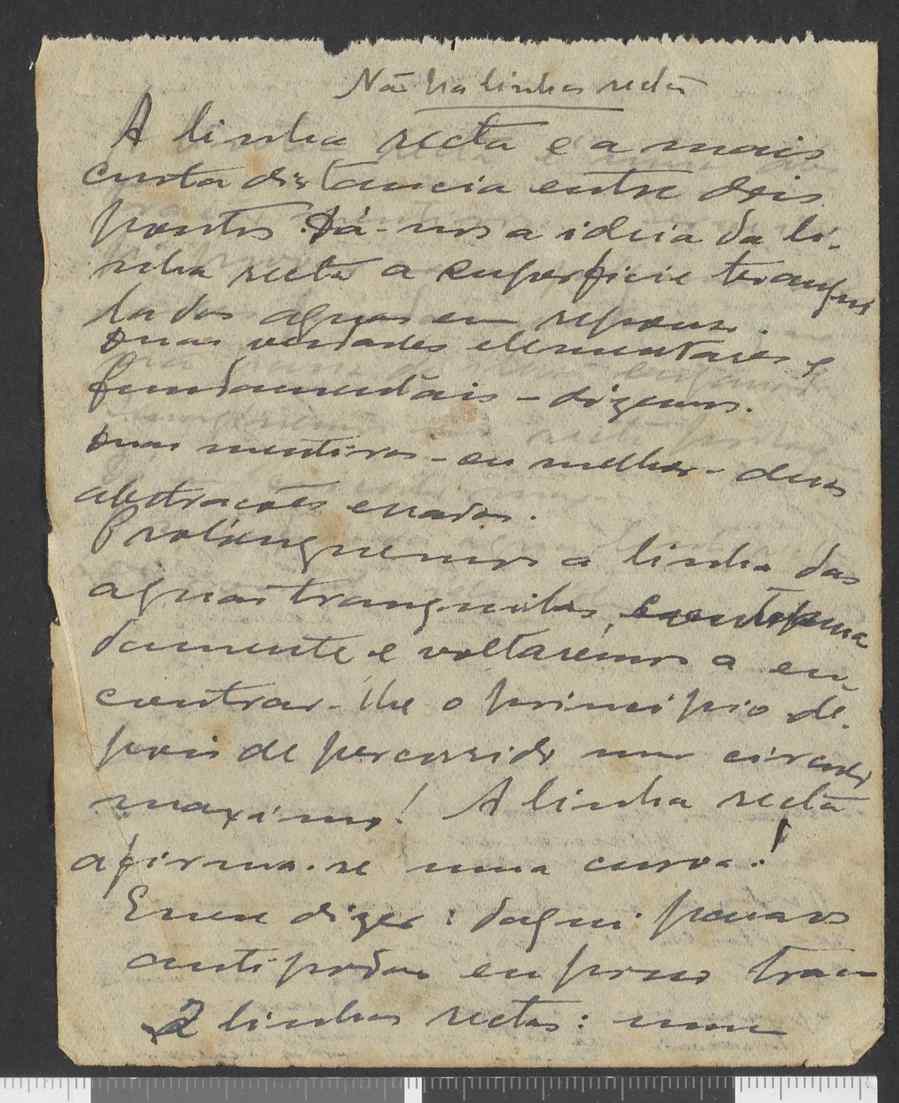 Não ha linhas rectas
A linha recta é a mais
curta distancia entre dois
pontos. Dá-nos a ideia da li-
nha recta a superficie tranqui
la das aguas em repouso.
Duas verdades elementares e
fundamentais - dizemos.
Duas mentiras - ou melhor - duas
abstracções erradas.
Prolonguemos a linha das
aguas tranquilas
damente e voltaremos a en-
contrar-lhe o principio de-
pois de percorrido um circulo
maximo! A linha recta
afirma-se uma curva!
dizer: daqui para os
antipodas eu posso tra
2 linhas rectas: uma